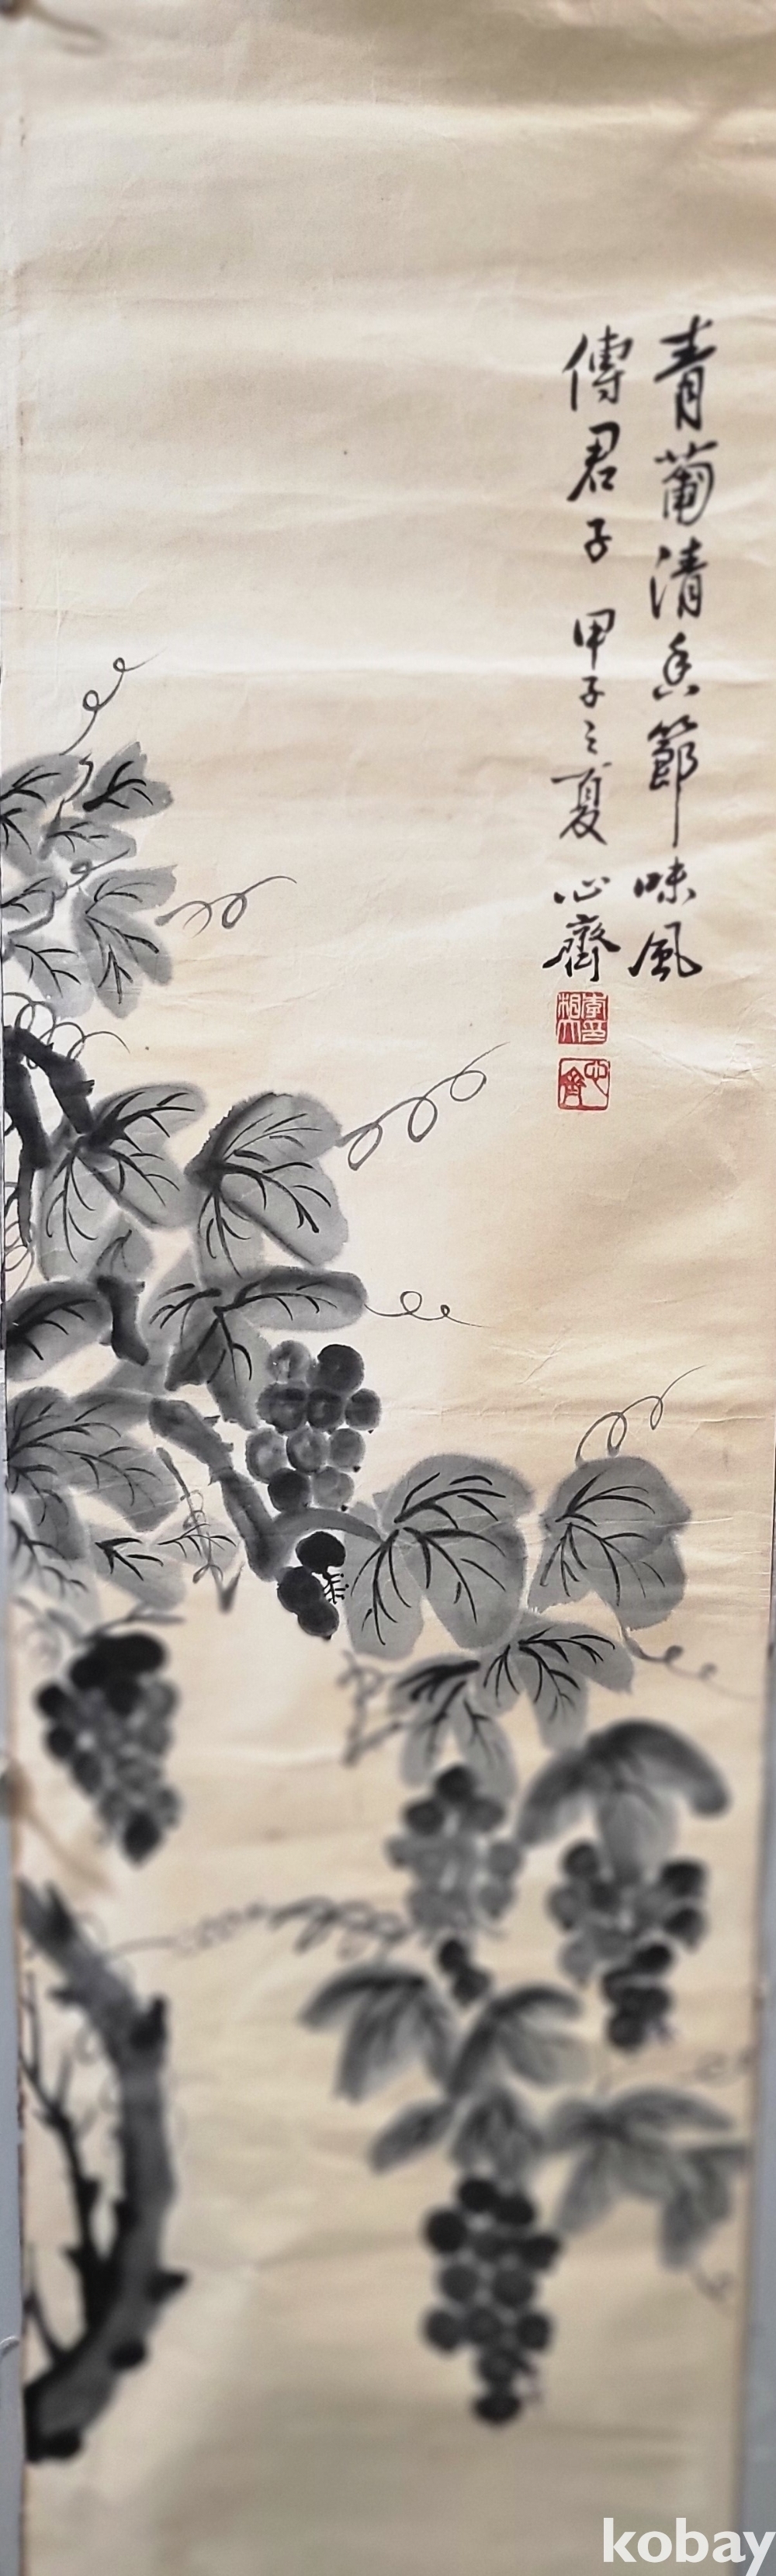 青葡清香節味風
傳君子 甲子之夏 心齋
心齋
kobay